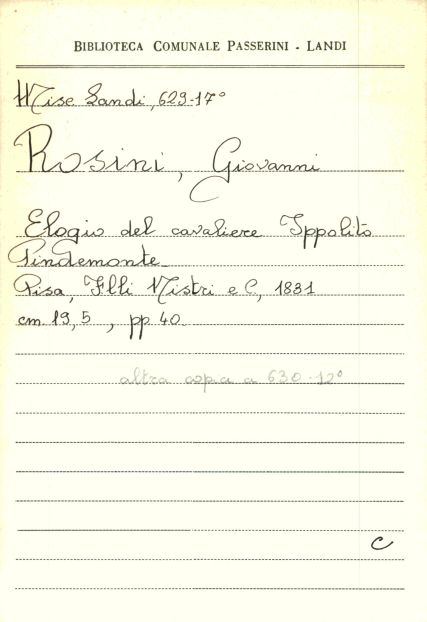 BIBLIOTECA COMUNALE PASSERINI - LANDI
Misc Landi, 629-17°
Rosini, Giovanni
Elogio del cavaliere Ippolito
Pindemonte
Pisa, F.lli Nistri e C, 1831
cm 19,5 , pp 40
altra copia a 630-12°
C